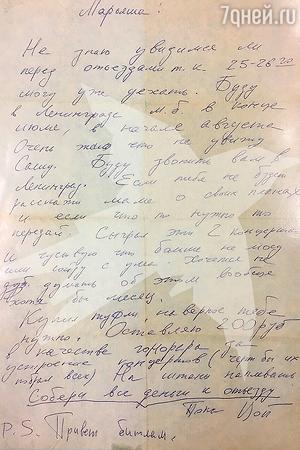 7дней.ru
Марьяша!
Не знаю увидимся ли
перед отъездами т.к. 25-26го
могу уже уехать. Буду
в Ленинграде м.б. в конце
июля, в начале августа
Очень жаль что не увижу
Сашу. Буду звонить вам в
Ленинград. Если тебя не будет
расскажи маме о своих планах
и если что то нужно то
передай. Сыграл эти 2 концерта
и чувствую что больше не могу
или сойду с ума. Хочется не
думать об этом вообще
хотя бы месяц.
Купил туфли наверное тебе
нужно. Оставляю 200 руб
в качестве гонорара за
устройство концертов (черт бы их
побрал всех) На штаны наплевать
Собери все деньги к отъезду
Пока Цой
P.S. Привет битлам.